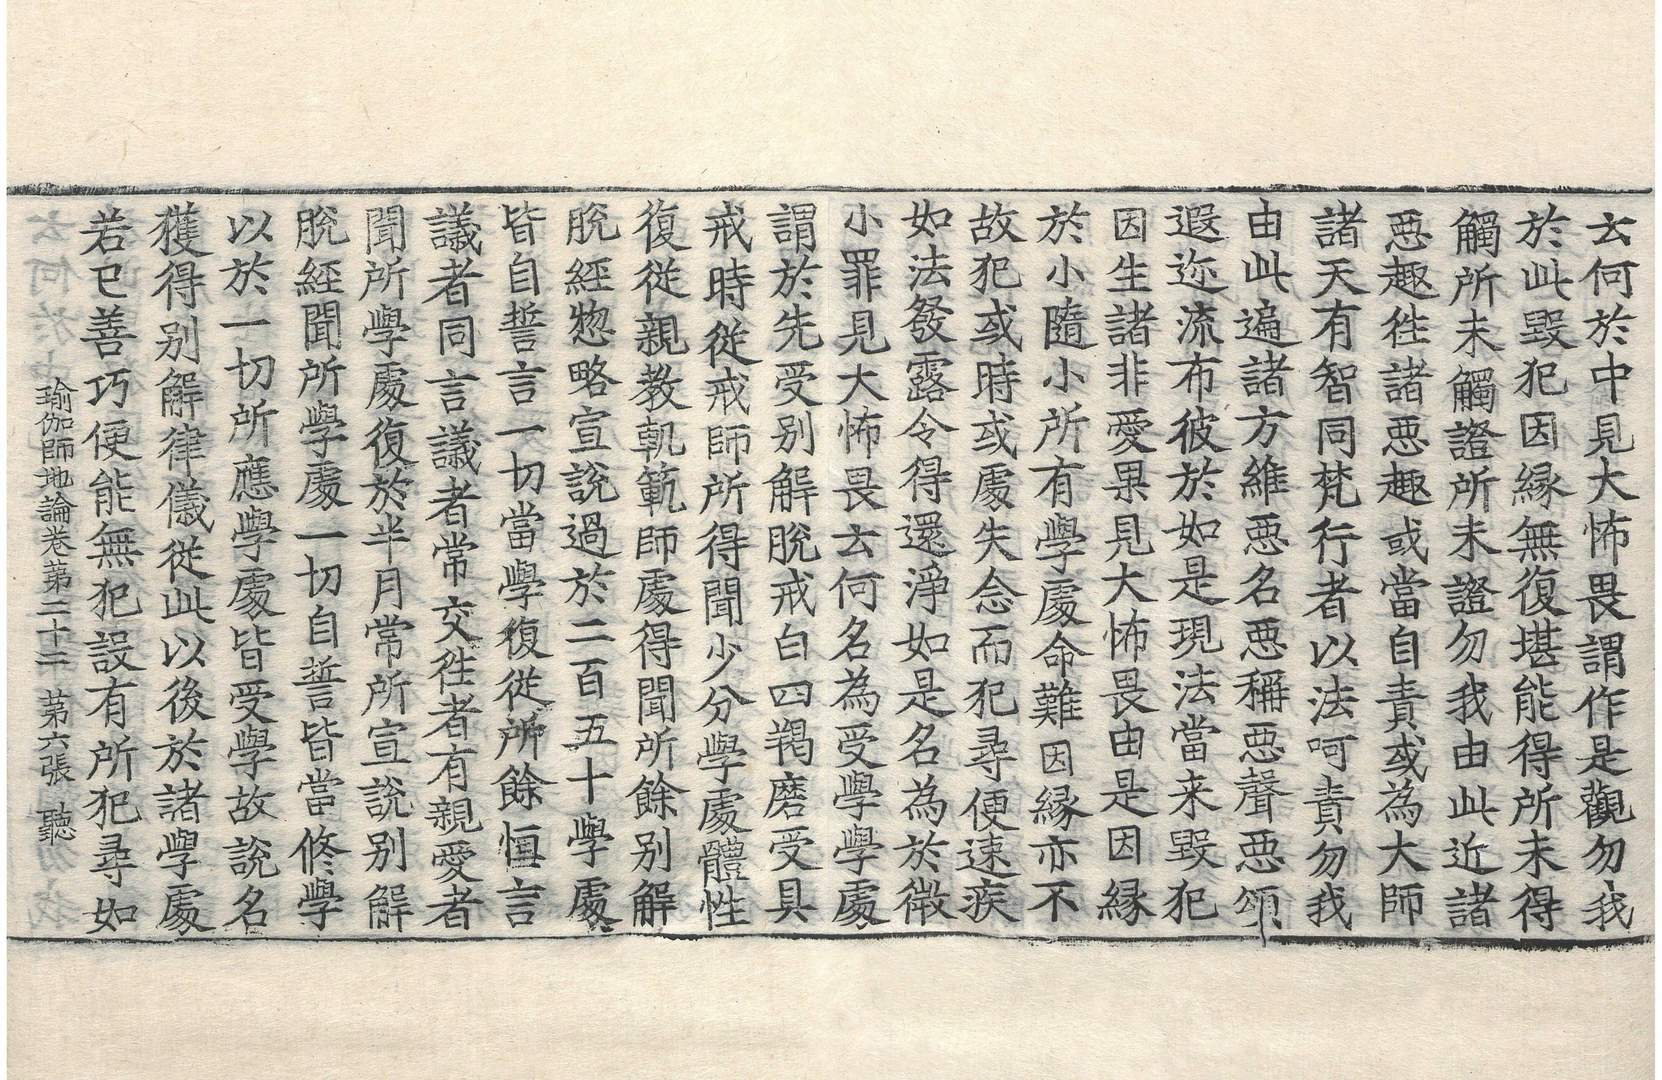 云何於中見大怖畏謂作是觀勿我
於此毀犯因緣無復堪能得所未得
觸所未觸證所未證勿我由此近諸
惡趣往諸惡趣或當自責或為大師
諸天有智同梵行者以法呵責勿我
由此遍諸方維惡名惡稱惡聲惡頌
遐迩流布彼於如是現法當来毀犯
因生諸非愛果見大怖畏由是因緣
於小隨小所有學處命難因緣亦不
故犯或時或處失念而犯尋便速疾
如法發露令得還淨如是名為於微
小罪見大怖畏云何名為受學學處
謂於先受別解脫戒白四羯磨受具
戒時從戒師所得聞少分學處體性
復從親教軌範師處得聞所餘別解
脫經惣略宣說過於二百五十學處
皆自誓言一切當學復從所餘恒言
議者同言議者常交往者有親愛者
聞所學處復於半月常所宣說別解
脫經聞所學處一切自誓皆當修學
以於一切所應學處皆受學故說名
獲得別解律儀從此以後於諸學處
若已善巧便能無犯設有所犯尋如
瑜伽師地論卷第二十二 第六張 聽